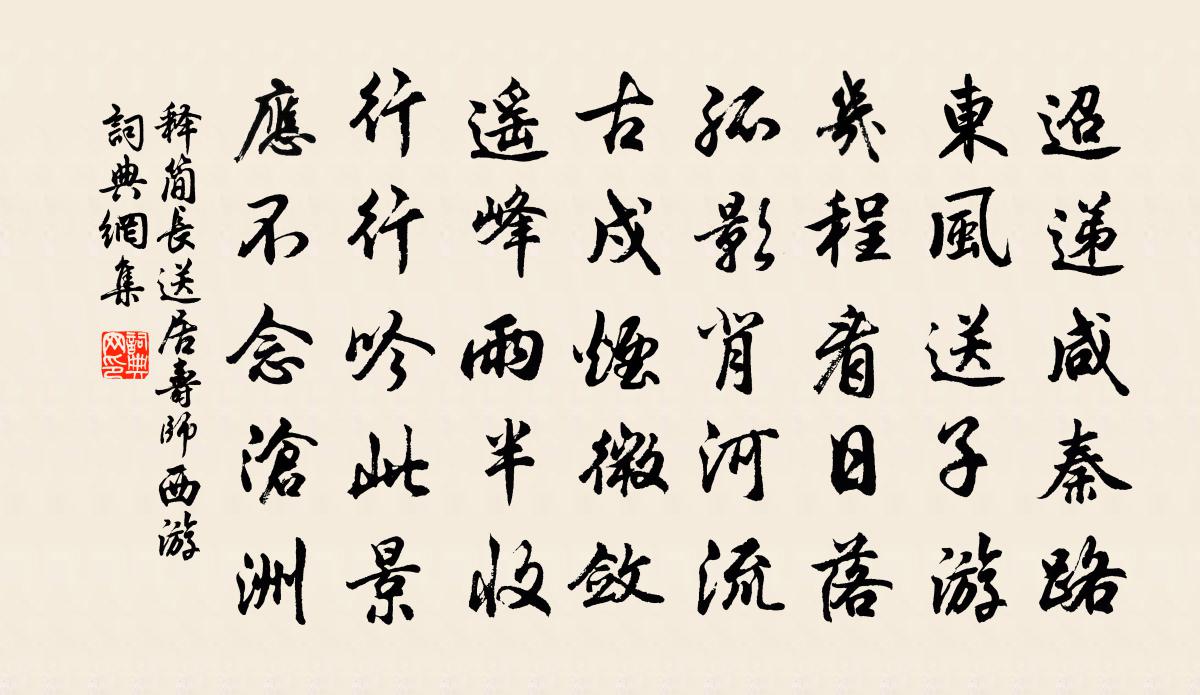 迢遞咸秦路
東風送子游
幾程看日落
孤影背河流
古戍煙微斂
遥峰雨半收
行行吟此景
應不念滄洲
释簡長送居壽師西游
詞典網集
詞典网印